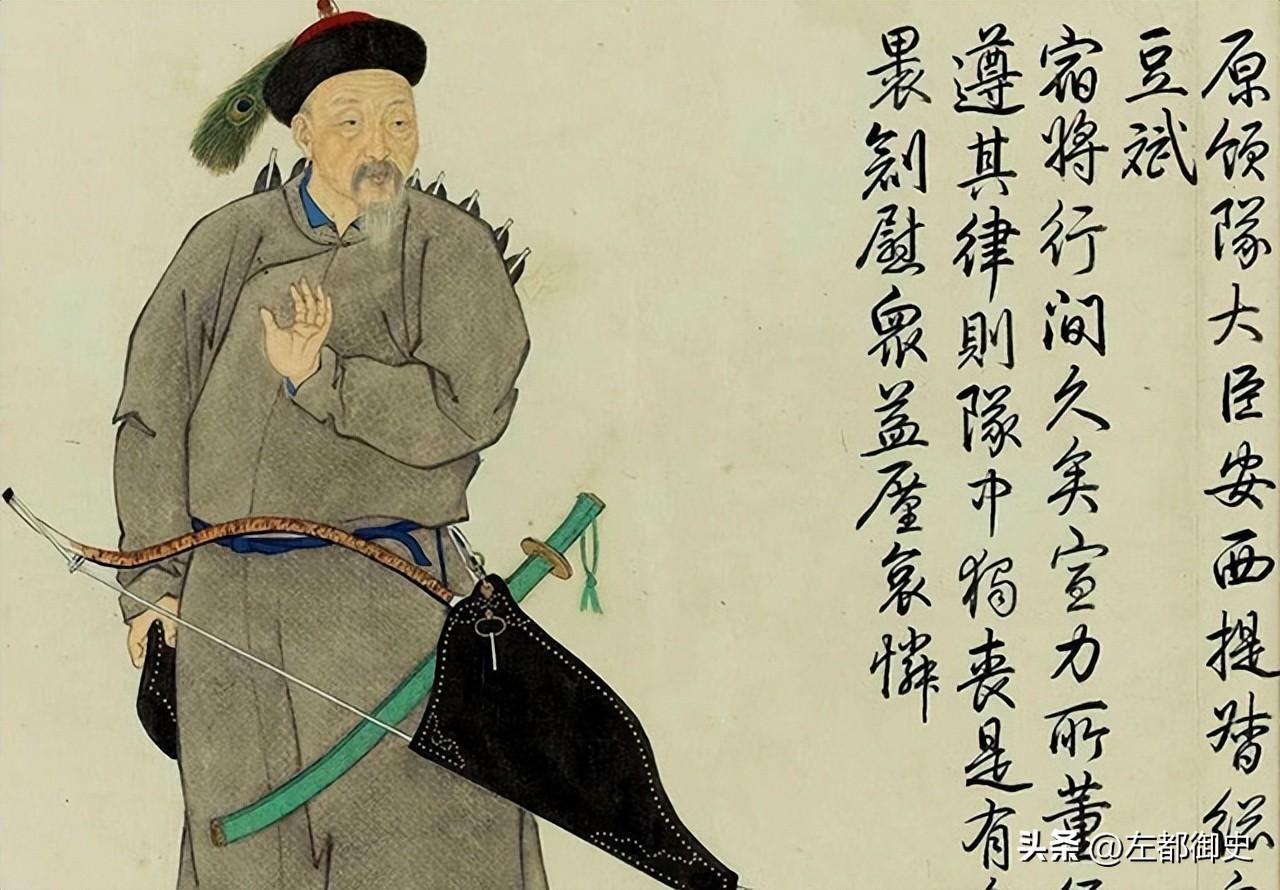 原領隊大臣安西提督総
豆斌
宿將行間久矣宣力所董
遵其律則隊中獨喪是有
褁創慰衆益厪哀憐
头条 @左都御史